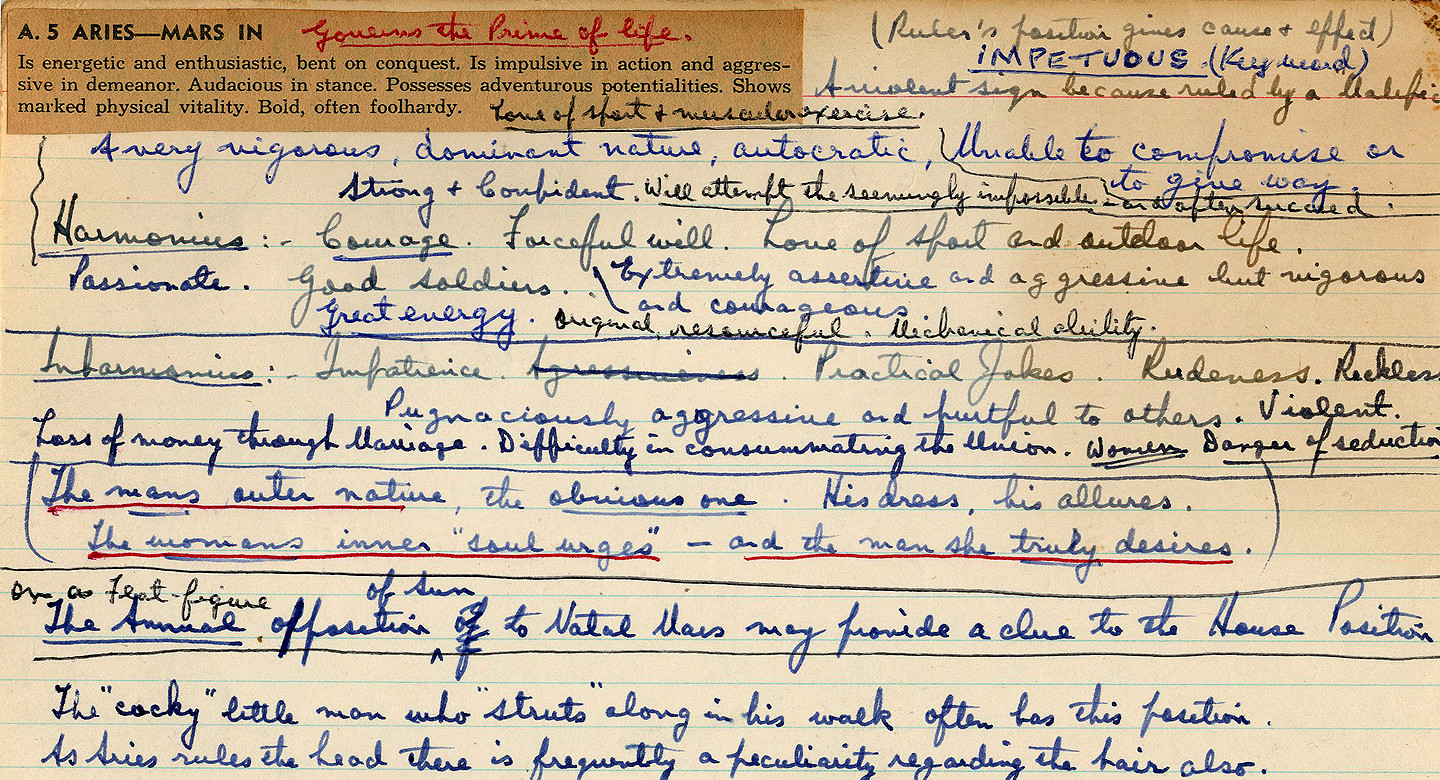 A. 5 ARIES—MARS IN Governs the Prime of life.
(Ruler's position gives cause + effect)
IMPETUOUS. (Key word)
Is energetic and enthusiastic, bent on conquest. Is impulsive in action and aggres-
sive in demeanor. Audacious in stance. Possesses adventurous potentialities. Shows
marked physical vitality. Bold, often foolhardy.
A violent sign because ruled by a Malefic
Love of sport + muscular exercise.
A very vigorous, dominant nature, autocratic, Unable to compromise or
to give way.
Strong + Confident. Will attempt the seemingly impossible - and often succeed.
Harmonious:- Courage. Forceful will. Love of sport and outdoor life.
Passionate. Good soldiers. Extremely assertive and aggressive but vigorous
and courageous
Great energy. Original, resourceful. Mechanical ability.
Inharmonious:- Impatience. Agressiveness. Practical Jokes. Rudeness. Reckless
Pugnaciously aggressive and hurtful to others. Violent.
Loss of money through Marriage. Difficulty in consummating the Union. Women Danger of seduction
The mans outer nature, the obvious one. His dress, his allures.
The womans inner "soul urges" - and the man she truly desires.
on a Flat-figure
of Sun
The Annual opposition to Natal Mars may provide a clue to the House Position
The "cocky" little man who "struts" along in his walk often has this position.
As Aries rules the head there is frequently a peculiarity regarding the hair also.